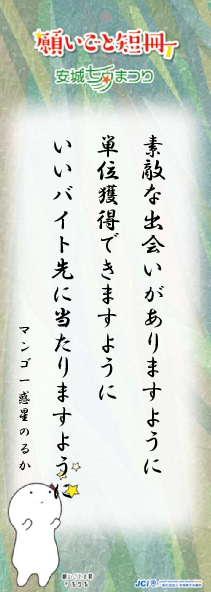 願いごと短冊
安城七夕まつり
素敵な出会いがありますように
単位獲得できますように
いいバイト先に当たりますように
マンゴー惑星のるか
JCI